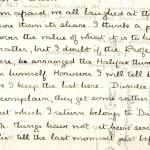 m afraid we all laughed at the
more than its share. I think a p
over the value of what it is to be
matter, but I doubt if the Profe
here, he arranged the Halifax thin
n himself. However I will tell h
I keep the list here. Dundee
complain, they get some rather
et which I return belongs to Du
h. things have not yet been sen
till the last moment just bef